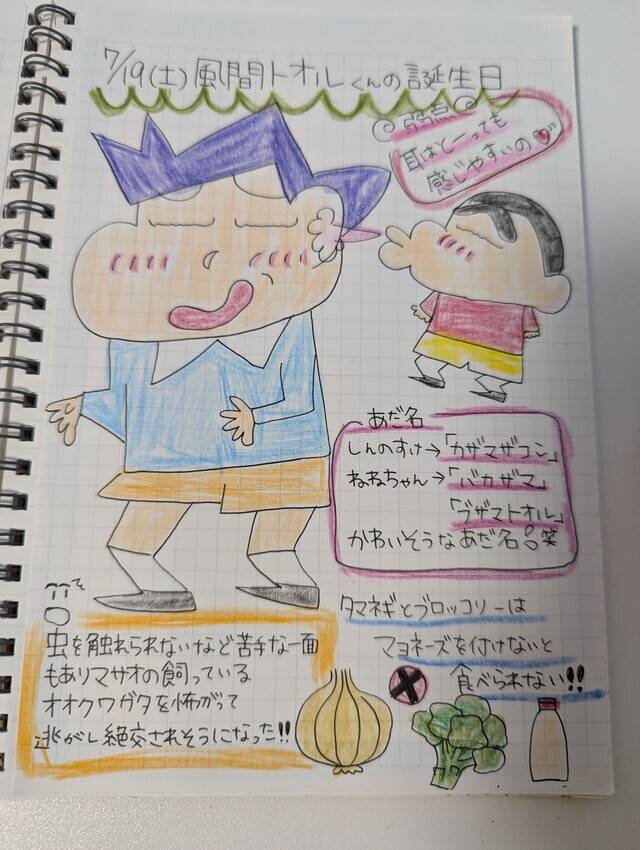 7/19(土)風間トオルくんの誕生日
弱点
耳はとーっても
感じやすいの
あだ名
しんのすけ→「カザマザコン」
ねねちゃん→「バカザマ」
「ブザマトオル」
かわいそうなあだ名笑
タマネギとブロッコリーは
マヨネーズを付けないと
食べられない!!
虫を触れられないなど苦手な一面
もありマサオの飼っている
オオクワガタを怖がって
逃がし絶交されそうになった!!